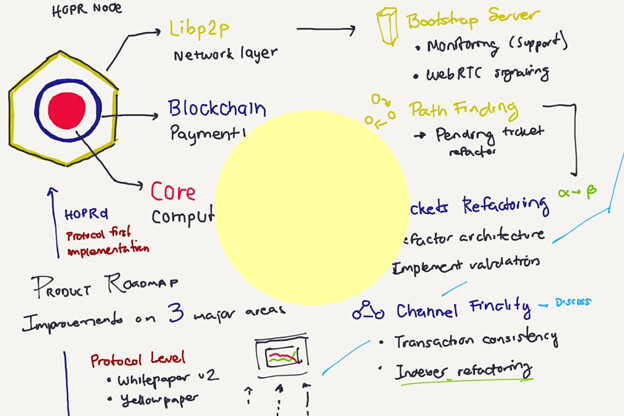 HOPR Node
Libp2p
Network layer
Bootstrap Server
• Monitoring (Support)
• WebRTC signaling
Blockchain
Path Finding
→ Pending ticket
refactor
Core
α → β
HOPRd
Protocol first
implementation
Refactoring
architecture
Implement validation
Product Roadmap
Improvements on 3 major areas
Channel Finality - Discuss
• Transaction consistency
• Indexer refactoring
Protocol Level
• Whitepaper v2
• Yellowpaper